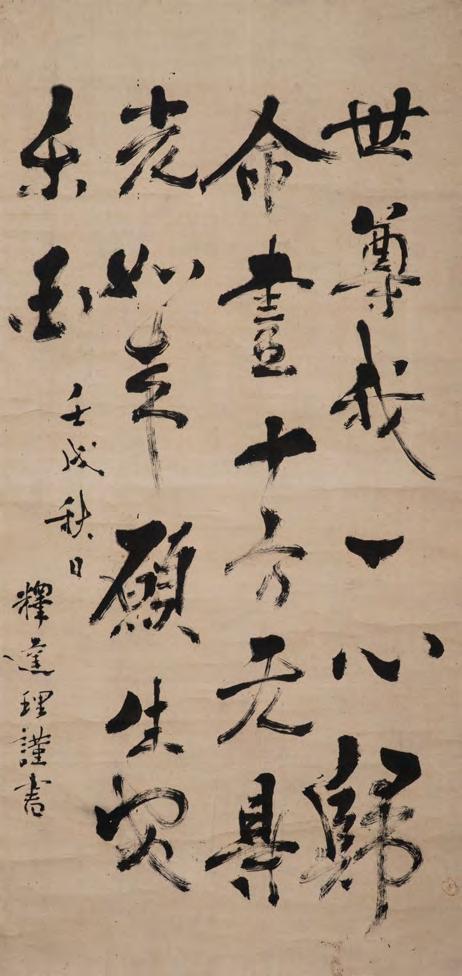 世尊我一心歸
命盡十方无㝵
光如来願生安
樂国
壬戌秋日
釋達理謹書